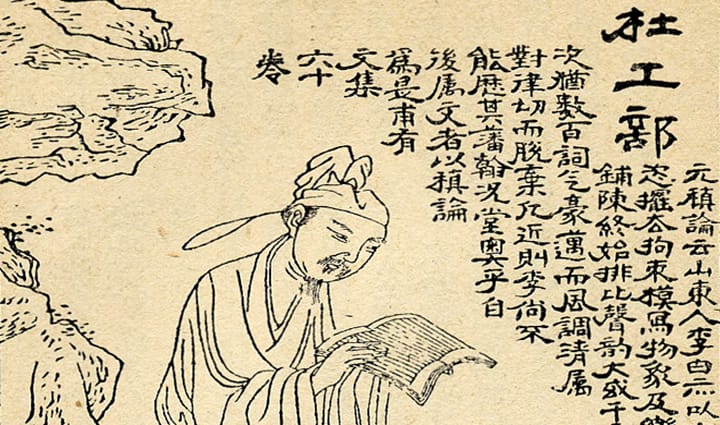 杜工部
元稹論云山東人李白亦以
恣擺去拘束模寫物象及樂
鋪陳終始排比聲韵大或千
次猶數百詞气豪邁而風調清属
對律切而脫棄凡近則李尚不
能歷其藩翰况堂奥乎自
後属文者以稹論
爲是甫有
文集
六十
卷